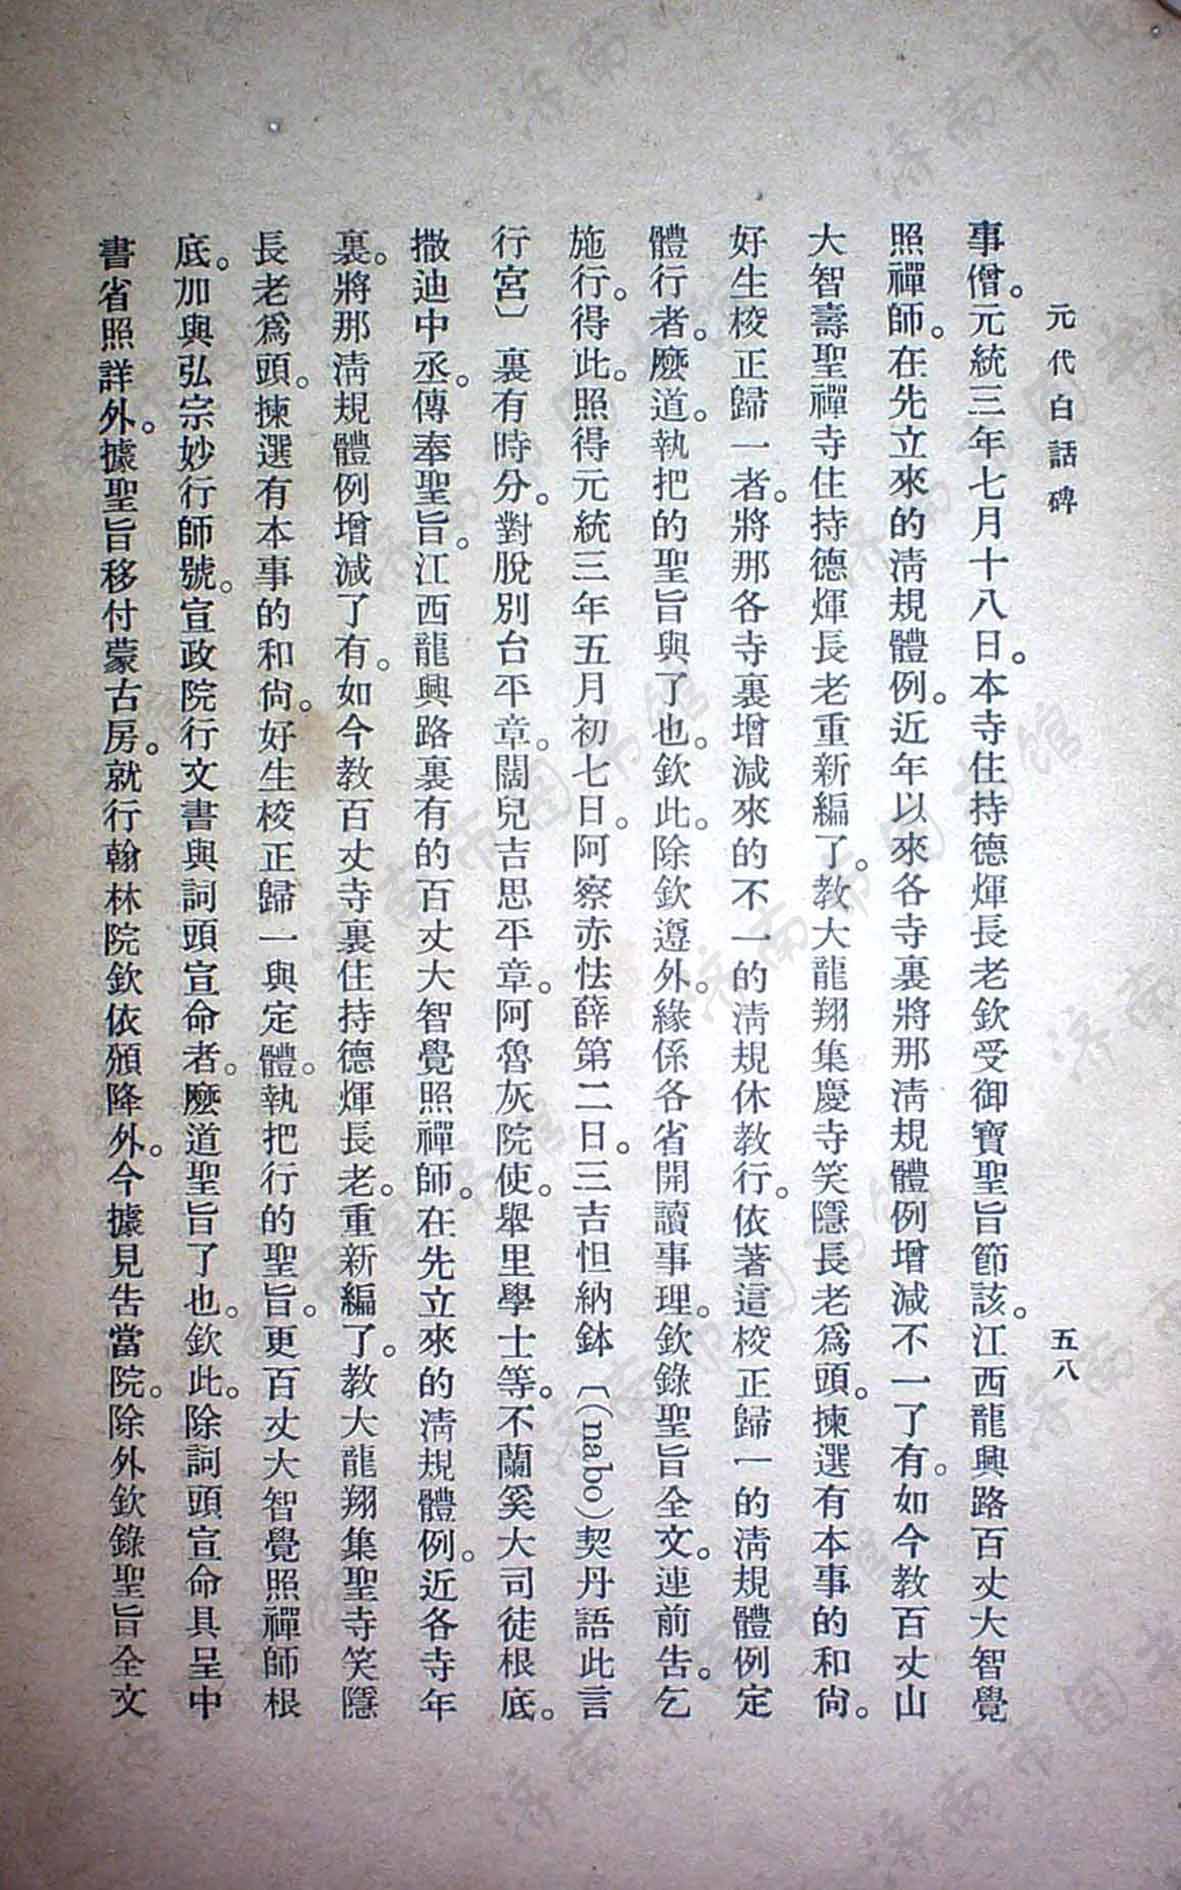 元代白話碑
五八
事僧。元統三年七月十八日。本寺住持德煇長老欽受御寶聖旨節該。江西龍興路百丈大智覺
照禪師。在先立來的清規體例。近年以來各寺裏將那清規體例增減不一了有。如今教百丈山
大智壽聖禪寺住持德煇長老重新編了。教大龍翔集慶寺笑隱長老爲頭。揀選有本事的和尙。
好生校正歸一者。將那各寺裏增減來的不一的清規休教行。依著這校正歸一的清規體例定
體行者。麽道。執把的聖旨與了也。欽此。除欽遵外。緣係各省開讀事理。欽錄聖旨全文。連前告。乞
施行。得此。照得元統三年五月初七日。阿察赤怯薛第二日。三吉怛納鉢〔(nabo)契丹語此言
行宮〕裏有時分。對脫別台平章。闊兒吉思平章。阿魯灰院使。舉里學士等。不蘭奚大司徒根底。
撒迪中丞。傳奉聖旨。江西龍興路裏有的百丈大智覺照禪師。在先立來的清規體例。近各寺年
裏。將那清規體例增減了有。如今教百丈寺裏住持德煇長老。重新編了。教大龍翔集聖寺笑隱
長老爲頭。揀選有本事的和尙。好生校正歸一與定體。執把行的聖旨。更百丈大智覺照禪師根
底。加與弘宗妙行師號。宣政院行文書與詞頭宣命者。麽道聖旨了也。欽此。除詞頭宣命具呈中
書省照詳外。據聖旨移付蒙古房。就行翰林院欽依頒降外。今據見告當院。除外欽錄聖旨全文
濟南市图书馆